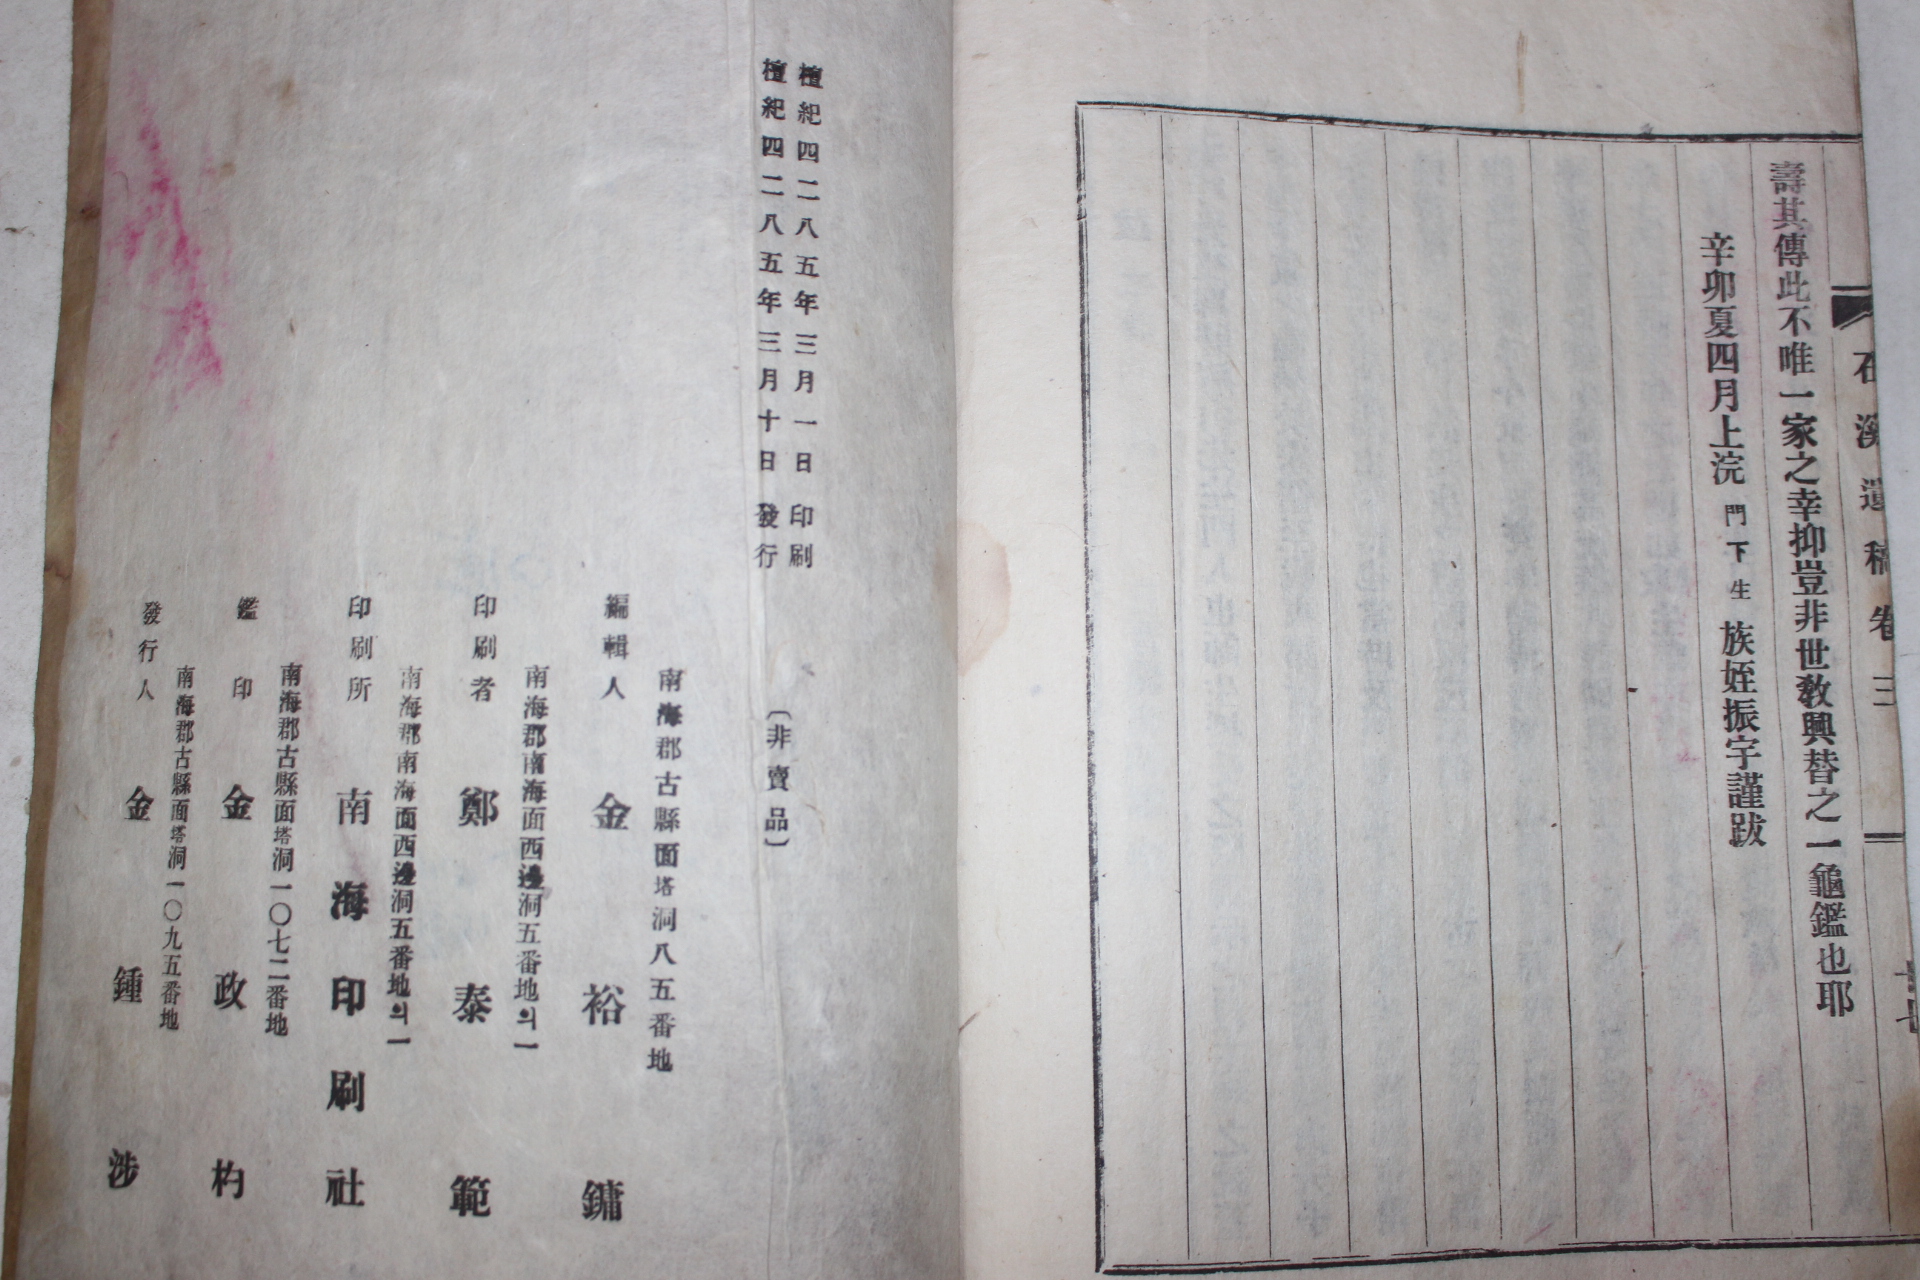 石溪遺稿卷三
壽其傳此不唯一家之幸抑豈非世敎興替之一龜鑑也耶
辛卯夏四月上浣 門下生 族姪振宇謹跋
檀紀四二八五年三月一日 印刷
檀紀四二八五年三月十日 發行
〔非賣品〕
南海郡古縣面塔洞八五番地
編輯人 金裕鏞
南海郡南海面西邊洞五番地의一
印刷者 鄭泰範
南海郡南海面西邊洞五番地의一
印刷所 南海印刷社
南海郡古縣面塔洞一〇七二番地
鑑印 金政杓
南海郡古縣面塔洞一〇九五番地
發行人 金鍾涉